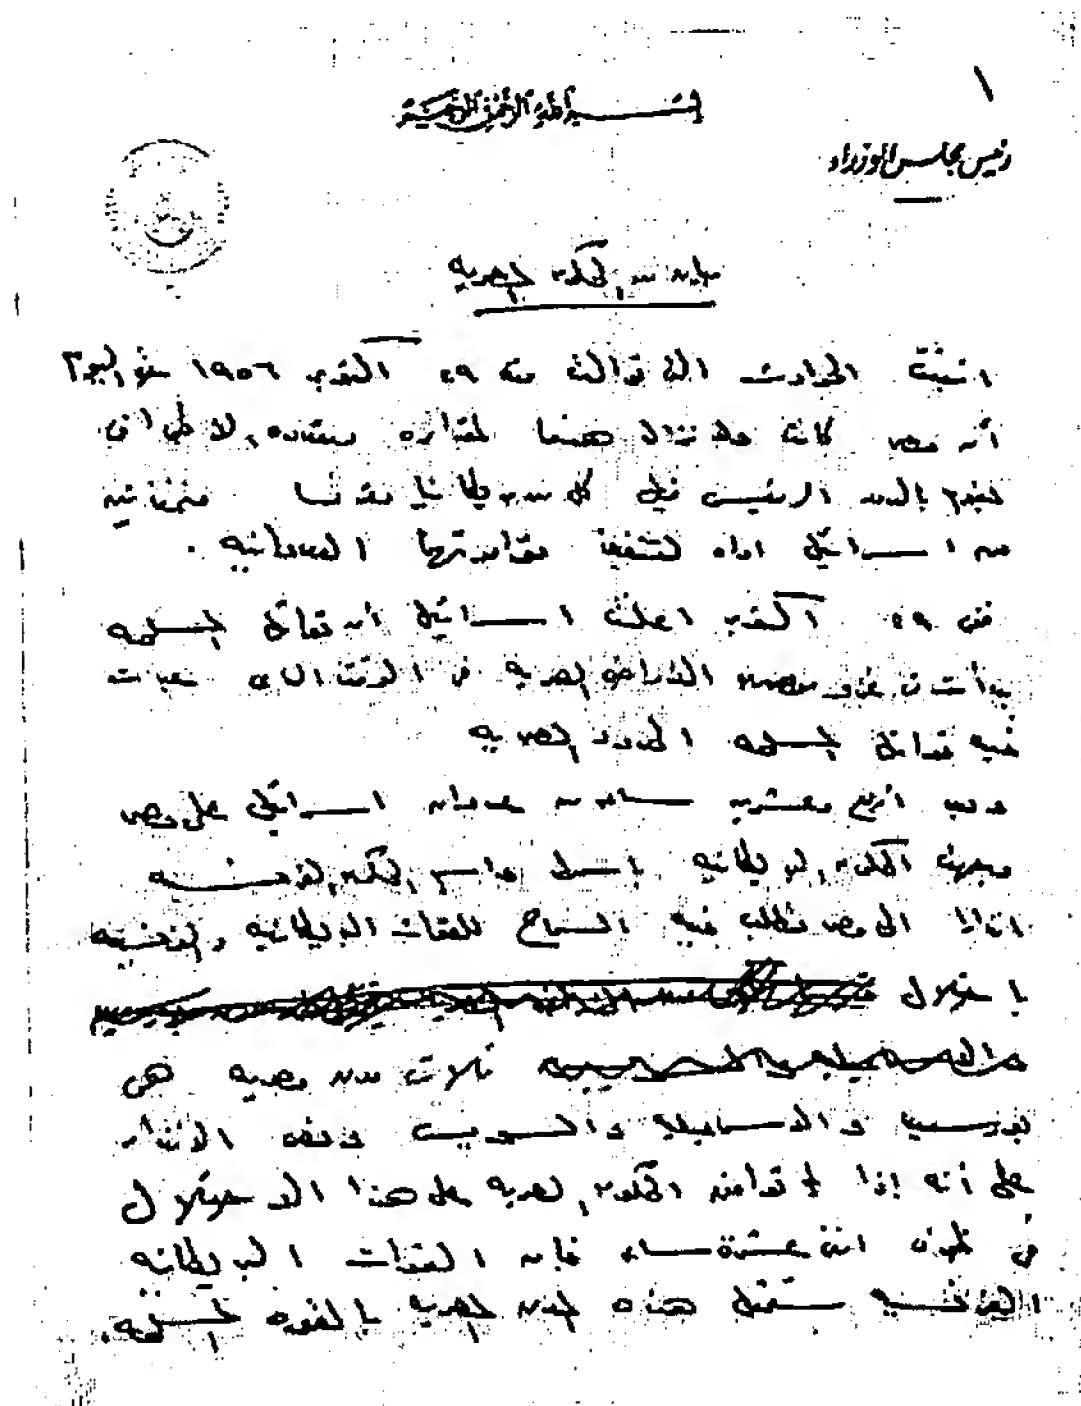 ١
بسم الله الرحمن الرحيم
رئيس مجلس الوزراء
بيان من الحكومة المصرية
اثبتت الحوادث التى توالت منذ ٢٩ اكتوبر ١٩٥٦ حتى اليوم
أن مصر كانت ولا تزال هدفا لمؤامرة
الرئيسى فيها كل من بريطانيا وفرنسا متخذتين
من اسرائيل اداه لتنفيذ مؤامرتها العدوانيه .
ففى ٢٩ اكتوبر اعلنت اسرائيل أن قواتها المسلحه
بدأت فى غزو الأراضى المصريه فى الوقت الذى عبرت
فيه قواتها المسلحه الحدود المصريه
وبعد أربع وعشرين ساعه من عدوان اسرائيل على مصر
وجهت الحكومه البريطانيه باسمها واسم الحكومه الفرنسيه
انذارا الى مصر تطلب فيه السماح للقوات البريطانيه والفرنسيه
باحتلال
ثلاث مدن مصريه هى
بورسعيد والاسماعيليه والسويس ونص الانذار
على أنه إذا لم توافق الحكومه المصريه على هذا الاحتلال
فى ظرف اثنى عشرة ساعه فان القوات البريطانيه
الفرنسيه ستحتل هذه المدن المصريه بالقوه المسلحه.